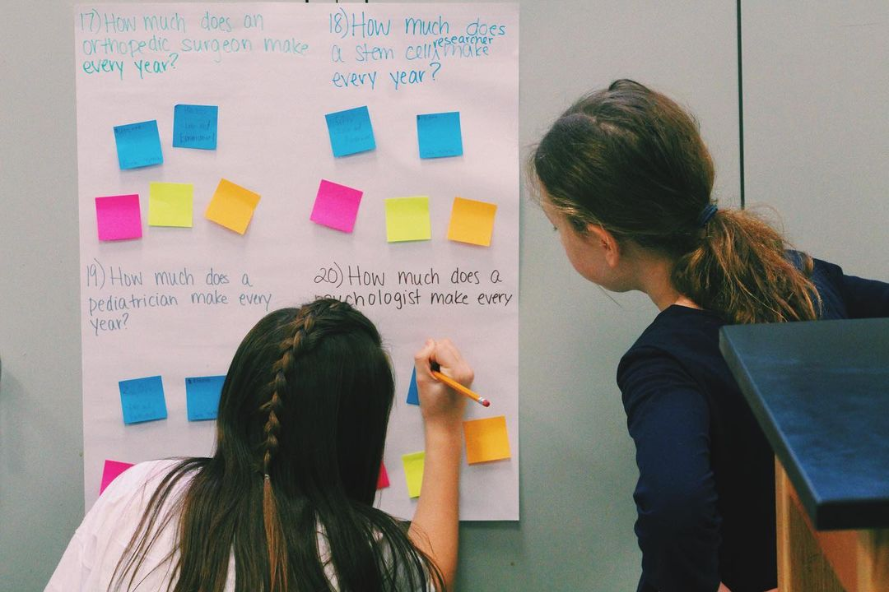 17) How much does an
orthopedic surgeon make
every year?
18) How much does
researcher
a stem cell make
every year?
19) How much does a
pediatrician make every
year?
20) How much does a
psychologist make every